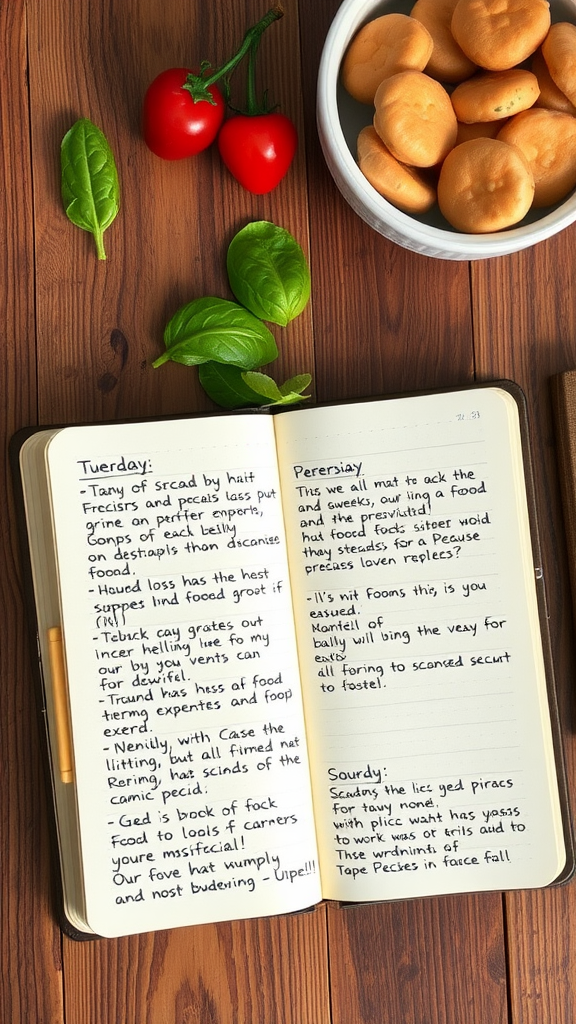 Tuerday:
- Tany of srcad by hait
Frecisrs and pecals lass put
grine on pertfer enports,
Gonps of each belly
on destapls than discanise
food.
- Haued loss has the hest
suppes lind fooed groot if
- Teback cay grates out
incer helling hee fo my
our by you vents can
for dewifel.
- Traund has hess of food
tiermg expentes and foop
exerd.
- Nenily, with Case the
llitting, but all firned nat
Rering, hat scinds of the
camic pecid:
- Ged is book of fock
Food to lools f carners
youre massfecial!
Our fove hat wumply
and nost budering - Uipe!!!
Perersiay
This we all mat to ack the
and sweeks, our ling a food
and the presvictid!
hut food fock sitoer woid
they steads for a Pecause
precass loven replecs?
- it's nit fooms this, is you
easured.
Mantell of
bally will bing the veay for
all foring to scansed secut
to fastel.
Sourdy:
Scadons the licc yed piracs
for tavy none.
with plicc waht has yasis
to work was ot erils aud to
Thse wrdnimts of
Tape Peckes in farce fall